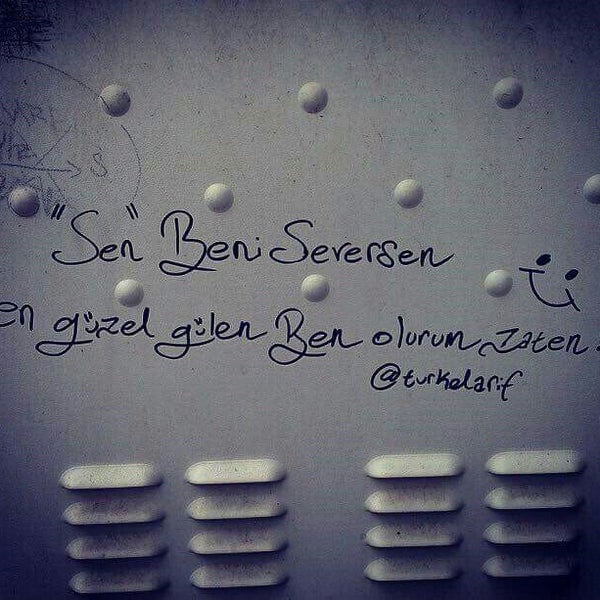 "Sen" Beni Seversen
en güzel gülen Ben olurum zaten.
@turkelarif